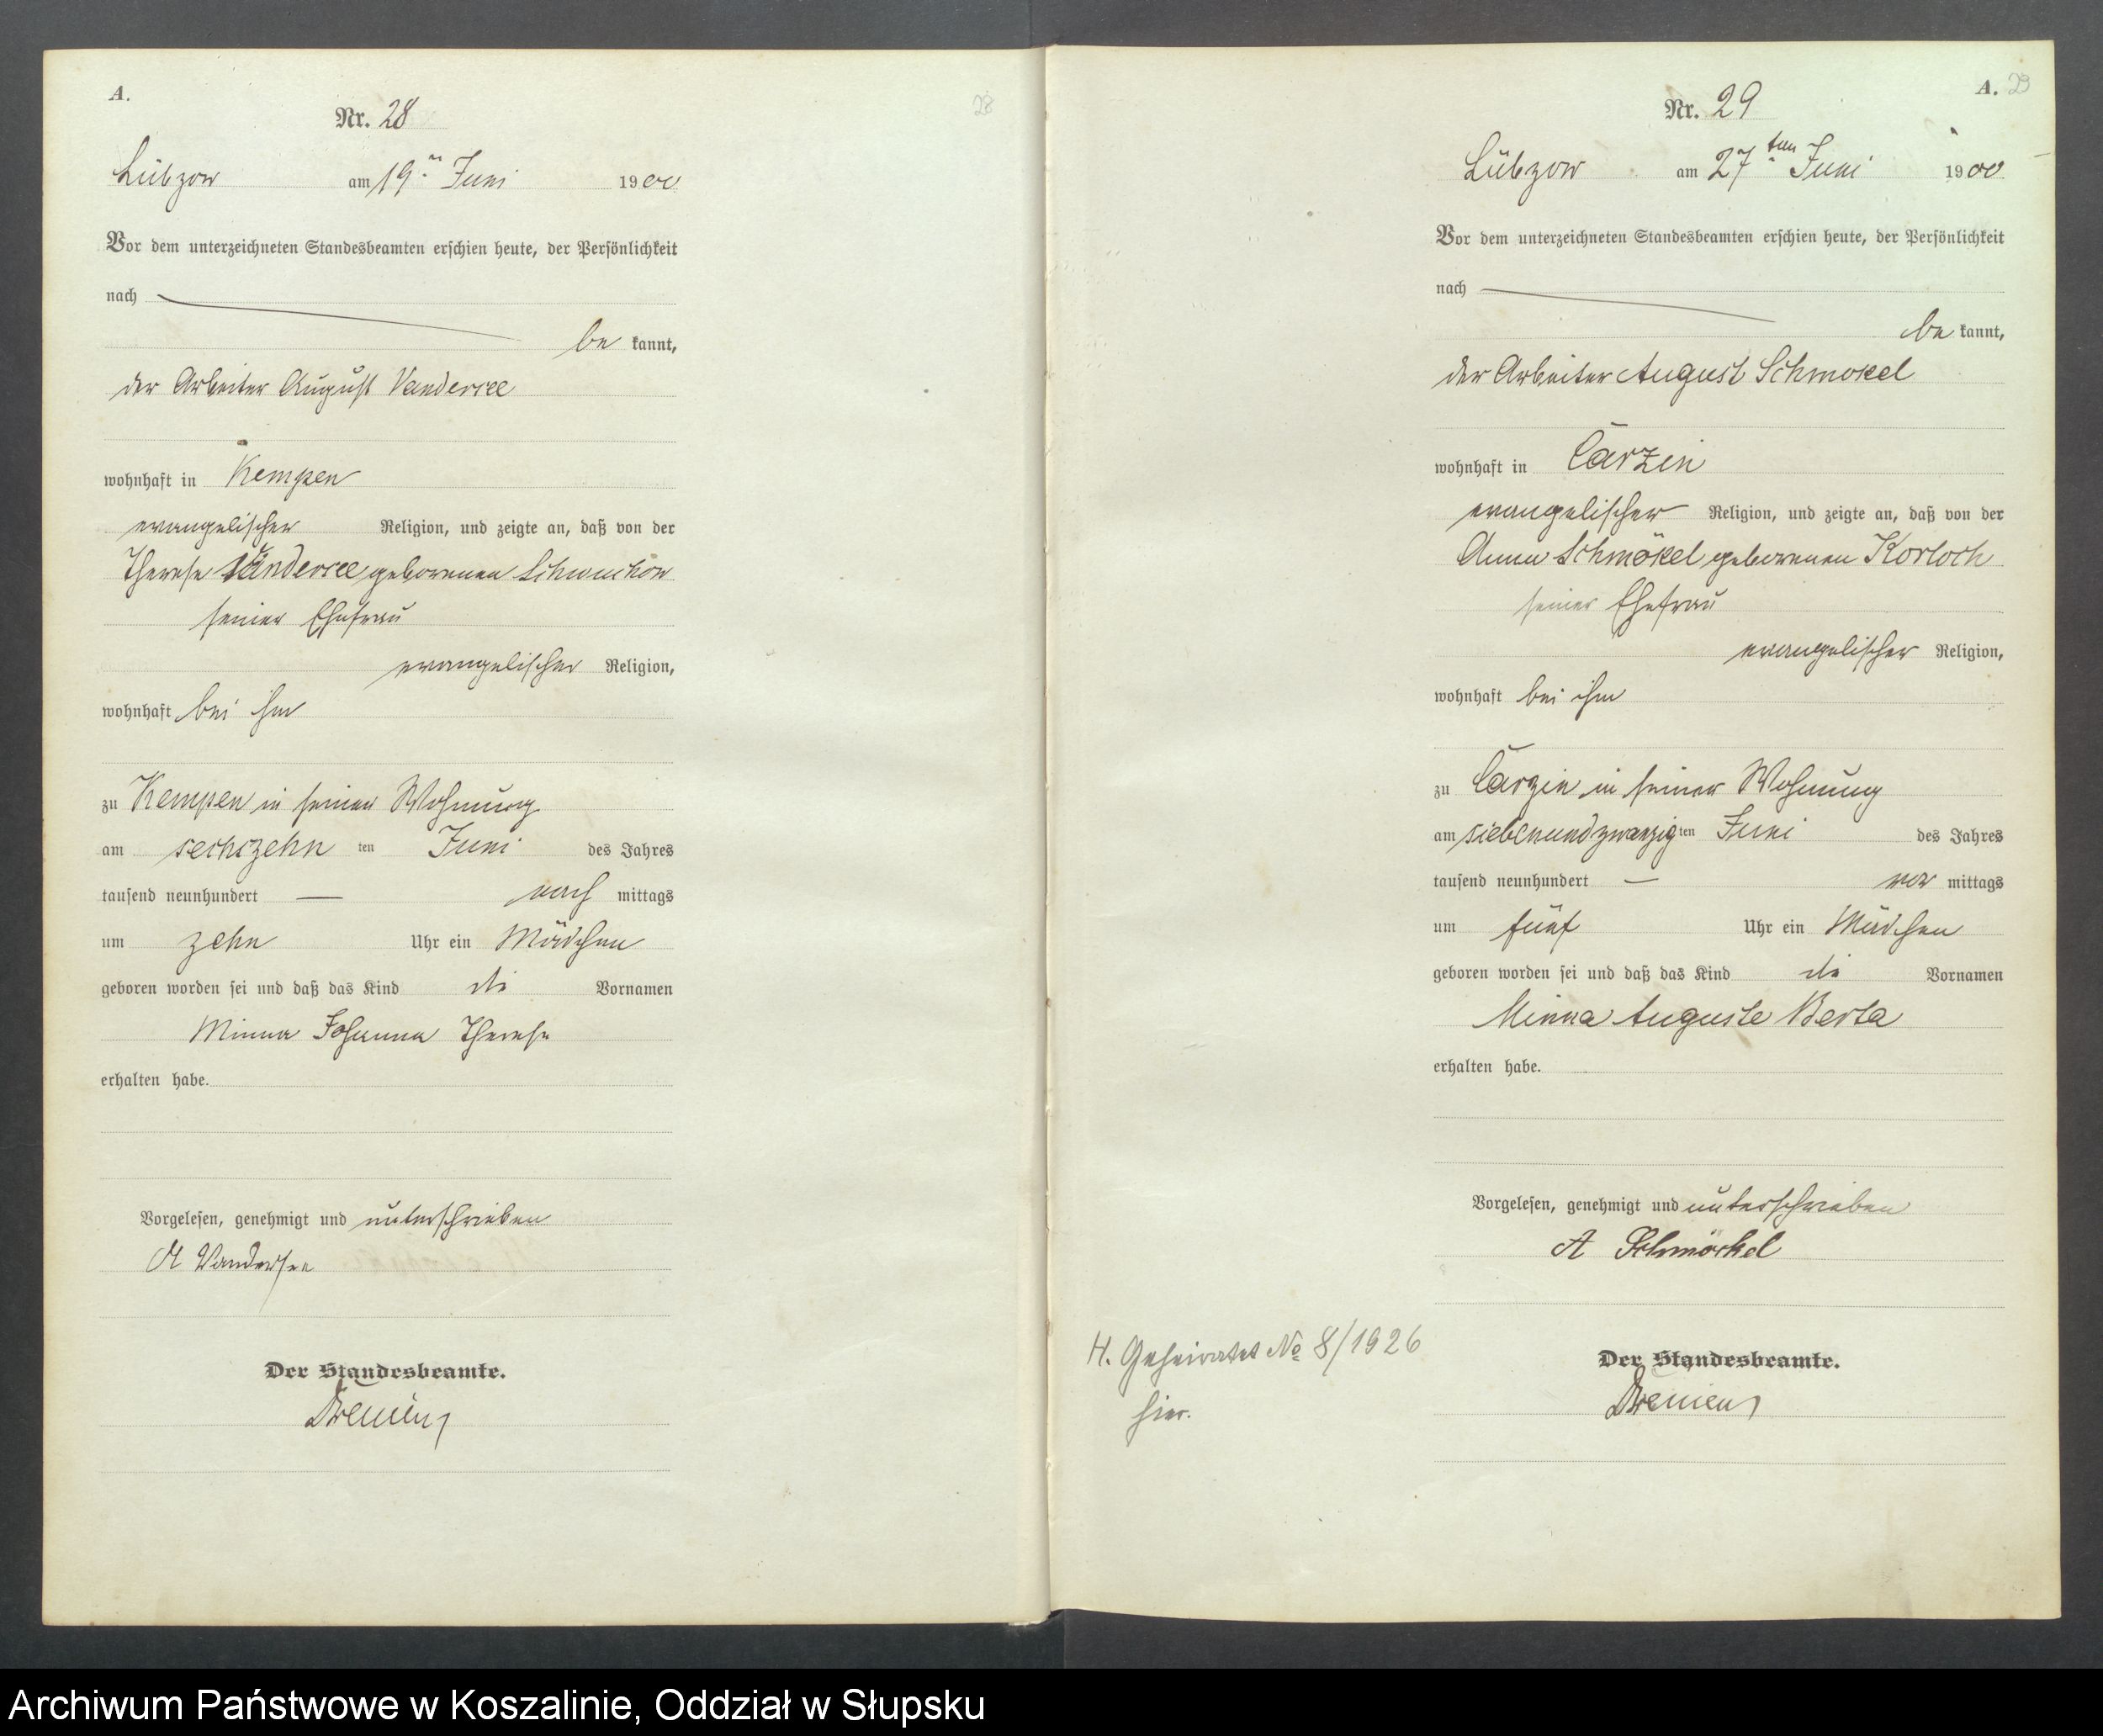 A.
28
Nr. 28
Lübzow am 19ten Juni 1900
Vor dem unterzeichneten Standesbeamten erschien heute, der Persönlichkeit
nach
be kannt,
der Arbeiter August Vandersee
wohnhaft in Kempen
evangelischer Religion, und zeigte an, daß von der
Therese Vandersee geborenen
seiner Ehefrau
evangelischer Religion,
wohnhaft bei ihm
zu Kempen in seiner Wohnung
am sechszehn ten Juni des Jahres
tausend neunhundert — nach mittags
um zehn Uhr ein Mädchen
geboren worden sei und daß das Kind die Vornamen
Minna Johanna Therese
erhalten habe.
Vorgelesen, genehmigt und unterschrieben
A Vandersee
Der Standesbeamte.
A. 29
Nr. 29
Lübzow am 27ten Juni 1900
Vor dem unterzeichneten Standesbeamten erschien heute, der Persönlichkeit
nach
be kannt,
der Arbeiter August Schmökel
wohnhaft in Carzin
evangelischer Religion, und zeigte an, daß von der
Anna Schmökel geborenen Korloch
seiner Ehefrau
evangelischer Religion,
wohnhaft bei ihm
zu Carzin in seiner Wohnung
am siebenundzwanzig ten Juni des Jahres
tausend neunhundert — vor mittags
um fünf Uhr ein Mädchen
geboren worden sei und daß das Kind die Vornamen
Minna Auguste Berta
erhalten habe.
Vorgelesen, genehmigt und unterschrieben
A Schmöckel
H. Geheiratet No 8/1926
hier.
Der Standesbeamte.
Archiwum Państwowe w Koszalinie, Oddział w Słupsku